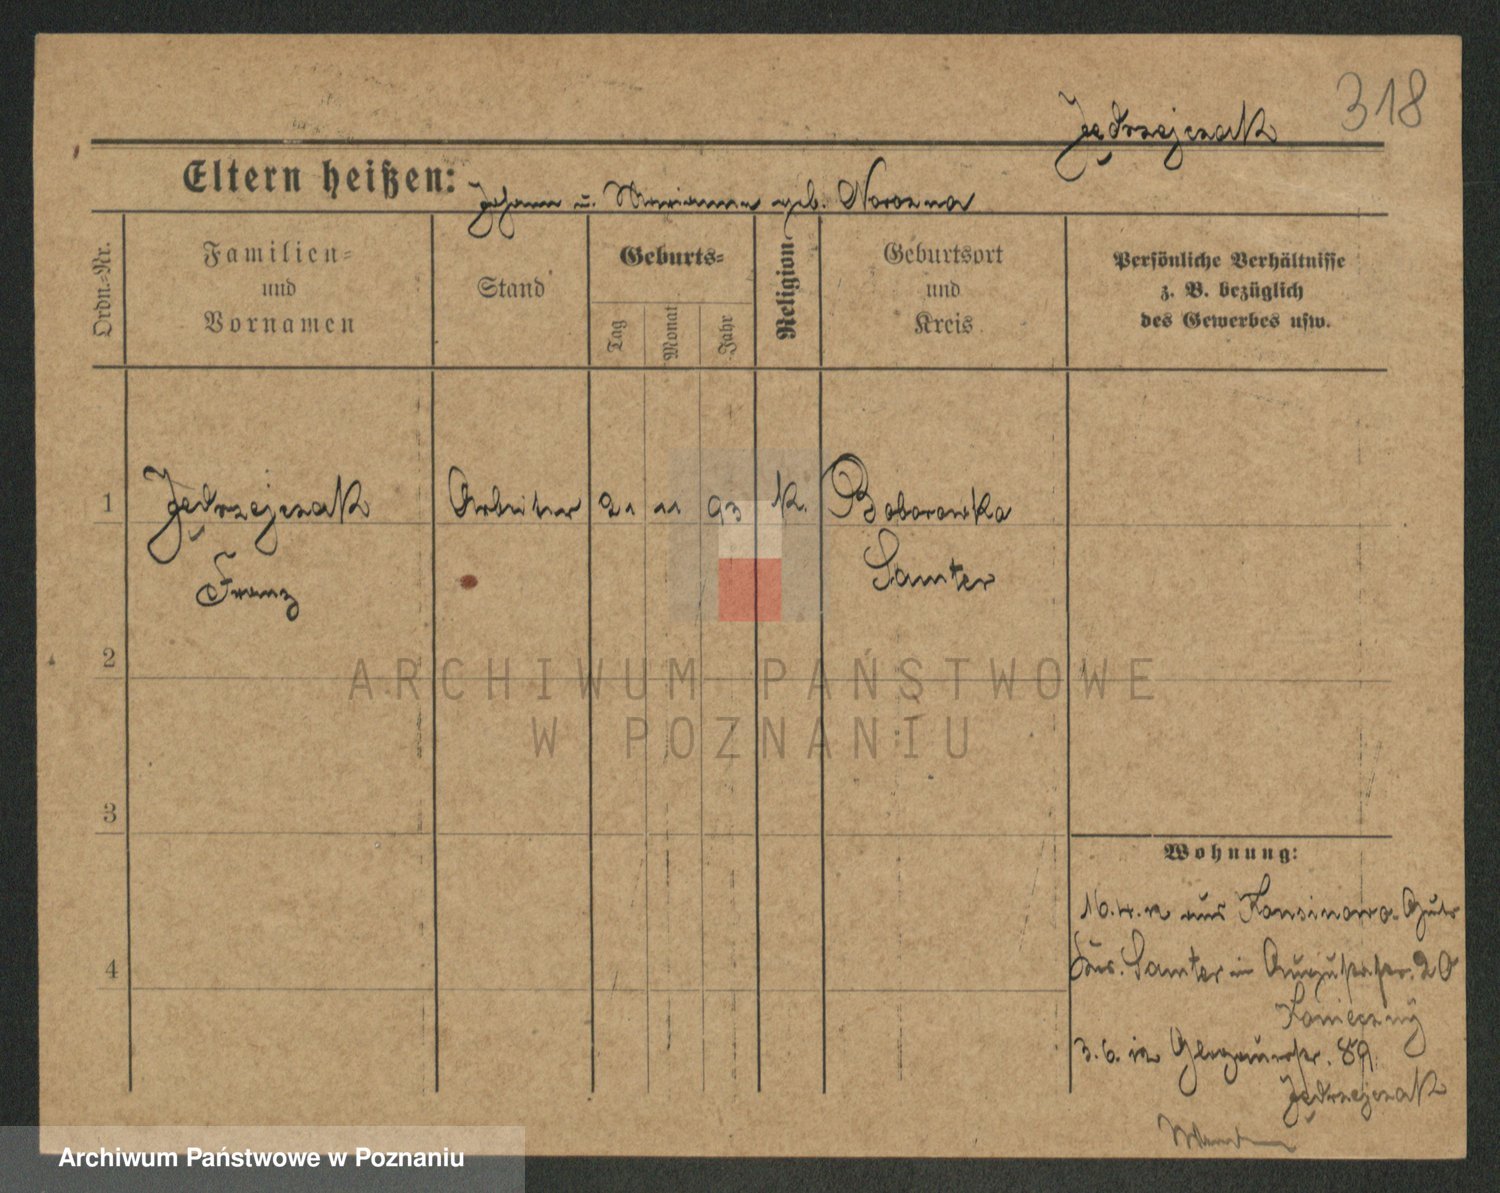 318
Jędrzejczak
Eltern heißen: Johann u. Marianna geb. Norozna
Ordn.-Nr.
Familien-
und
Vornamen
Stand
Geburts-
Tag
Monat
Jahr
Religion
Geburtsort
und
Kreis
Persönliche Verhältnisse
z. B. bezüglich
des Gewerbes usw.
1 Jędrzejczak Arbeiter 21 11 93 K. Boborowko
Franz Samter
2
3
4
ARCHIWUM PAŃSTWOWE
W POZNANIU
Wohnung:
16.4.12 aus Konsinowo Guts
Samter in Augustastr. 20
Konieczny
3.6. in Glogauerstr. 89.
Jędrzejczak
Archiwum Państwowe w Poznaniu